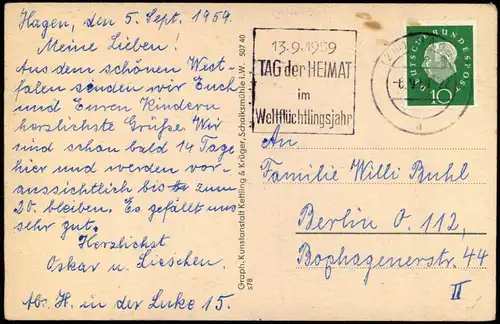 Hagen, den 5. Sept. 1959
Meine Lieben!
Aus dem schönen West-
falen senden wir Euch
und Euren Kindern
herzlichste Grüße. Wir
sind schon bald 14 Tage
hier und werden vor-
aussichtlich bis zum
20. bleiben. Es gefällt uns
sehr gut.
Herzlichst
Oskar u. Lieschen.
Abs. H. in der Luke 15.
Graph. Kunstanstalt Kettling & Krüger, Schalksmühle i.W. 507 40
S78
13.9.1959
TAG der HEIMAT
im
Weltflüchtlingsjahr
d
DEUTSCHE BUNDESPOST
10
An
Familie Willi Buhl
Berlin O. 112,
Boxhagenerstr. 44
II